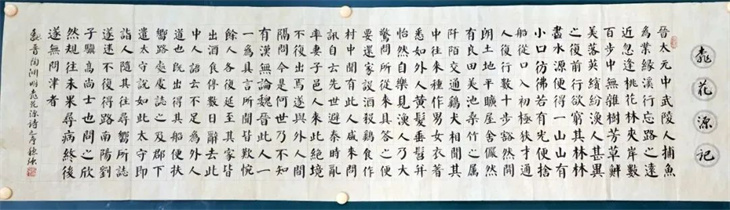 桃花源記
晉太元中武陵人捕魚
為業緣溪行忘路之遠
近忽逢桃花林夾岸數
百步中無雜樹芳草鮮
美落英繽紛漁人甚異
之復前行欲窮其林林
盡水源便得一山山有
小口彷彿若有光便捨
船從口入初極狹才通
人復行數十步豁然開
朗土地平曠屋舍儼然
有良田美池桑竹之屬
阡陌交通雞犬相聞其
中往來種作男女衣著
悉如外人黃髮垂髫並
怡然自樂見漁人乃大
驚問所從來具答之便
要還家設酒殺雞作食
村中聞有此人咸來問
訊自云先世避秦時亂
率妻子邑人來此絕境
不復出焉遂與外人間
隔問今是何世乃不知
有漢無論魏晉此人一
一為具言所聞皆歎惋
餘人各復延至其家皆
出酒食停數日辭去此
中人語云不足為外人
道也既出得其船便扶
嚮路處處誌之及郡下
詣太守說如此太守即
遣人隨其往尋嚮所誌
遂迷不復得路南陽劉
子驥高尚士也聞之欣
然規往未果尋病終後
遂無問津者
晉陶淵明桃花源